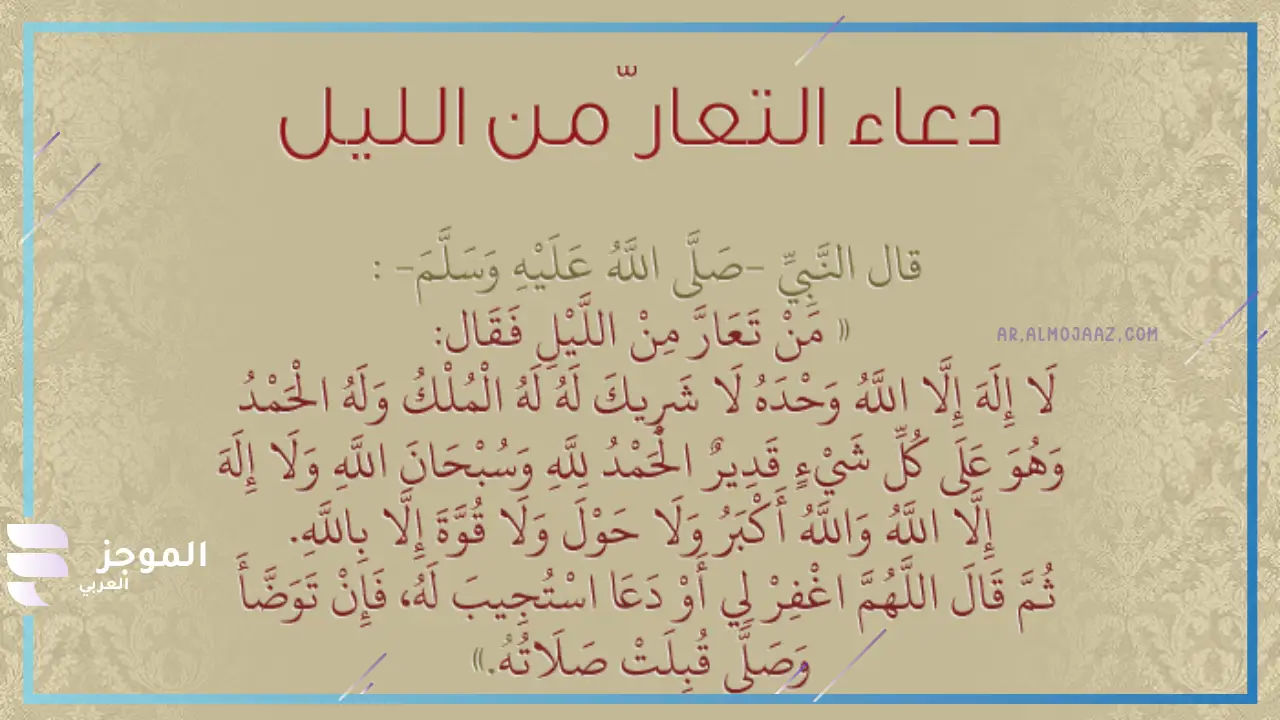 دعاء التعارّ من الليل
قال النَّبِيِّ -صَلَّى اللَّهُ عَلَيْهِ وَسَلَّمَ- :
« مَنْ تَعَارَّ مِنْ اللَّيْلِ فَقَال:
AR.ALMOJAAZ.COM
لَا إِلَهَ إِلَّا اللَّهُ وَحْدَهُ لَا شَرِيكَ لَهُ لَهُ الْمُلْكُ وَلَهُ الْحَمْدُ
وَهُوَ عَلَى كُلِّ شَيْءٍ قَدِيرٌ الْحَمْدُ لِلَّهِ وَسُبْحَانَ اللَّهِ وَلَا إِلَهَ
إِلَّا اللَّهُ وَاللَّهُ أَكْبَرُ وَلَا حَوْلَ وَلَا قُوَّةَ إِلَّا بِاللَّهِ.
ثُمَّ قَالَ اللَّهُمَّ اغْفِرْ لِي أَوْ دَعَا اسْتُجِيبَ لَهُ، فَإِنْ تَوَضَّأَ
وَصَلَّى قُبِلَتْ صَلَاتُهُ.»
الموجز
العربي